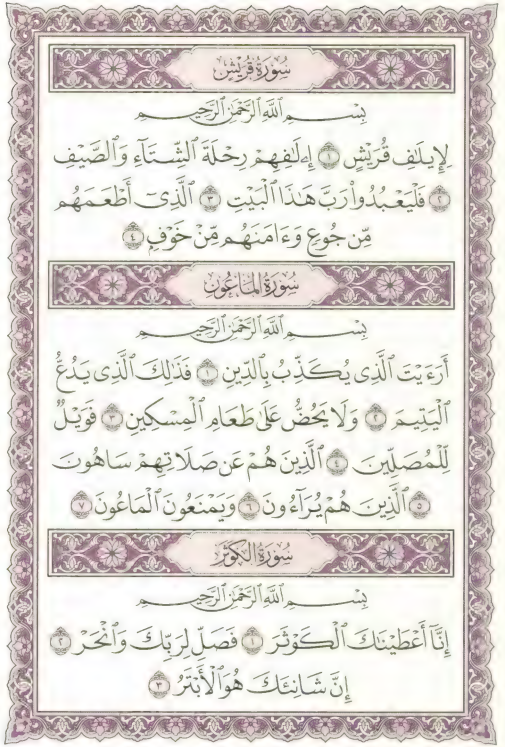 سُورَةُ قُرَيْشٍ
بِسْمِ ٱللَّهِ ٱلرَّحْمَٰنِ ٱلرَّحِيمِ
لِإِيلَٰفِ قُرَيْشٍ ١ إِۦلَٰفِهِمْ رِحْلَةَ ٱلشِّتَآءِ وَٱلصَّيْفِ
٢ فَلْيَعْبُدُوا۟ رَبَّ هَٰذَا ٱلْبَيْتِ ٣ ٱلَّذِىٓ أَطْعَمَهُم
مِّن جُوعٍ وَءَامَنَهُم مِّنْ خَوْفٍ ٤
سُورَةُ المَاعُونِ
بِسْمِ ٱللَّهِ ٱلرَّحْمَٰنِ ٱلرَّحِيمِ
أَرَءَيْتَ ٱلَّذِى يُكَذِّبُ بِٱلدِّينِ ١ فَذَٰلِكَ ٱلَّذِى يَدُعُّ
ٱلْيَتِيمَ ٢ وَلَا يَحُضُّ عَلَىٰ طَعَامِ ٱلْمِسْكِينِ ٣ فَوَيْلٌ
لِّلْمُصَلِّينَ ٤ ٱلَّذِينَ هُمْ عَن صَلَاتِهِمْ سَاهُونَ
٥ ٱلَّذِينَ هُمْ يُرَآءُونَ ٦ وَيَمْنَعُونَ ٱلْمَاعُونَ ٧
سُورَةُ الكَوْثَرِ
بِسْمِ ٱللَّهِ ٱلرَّحْمَٰنِ ٱلرَّحِيمِ
إِنَّآ أَعْطَيْنَٰكَ ٱلْكَوْثَرَ ١ فَصَلِّ لِرَبِّكَ وَٱنْحَرْ ٢
إِنَّ شَانِئَكَ هُوَ ٱلْأَبْتَرُ ٣